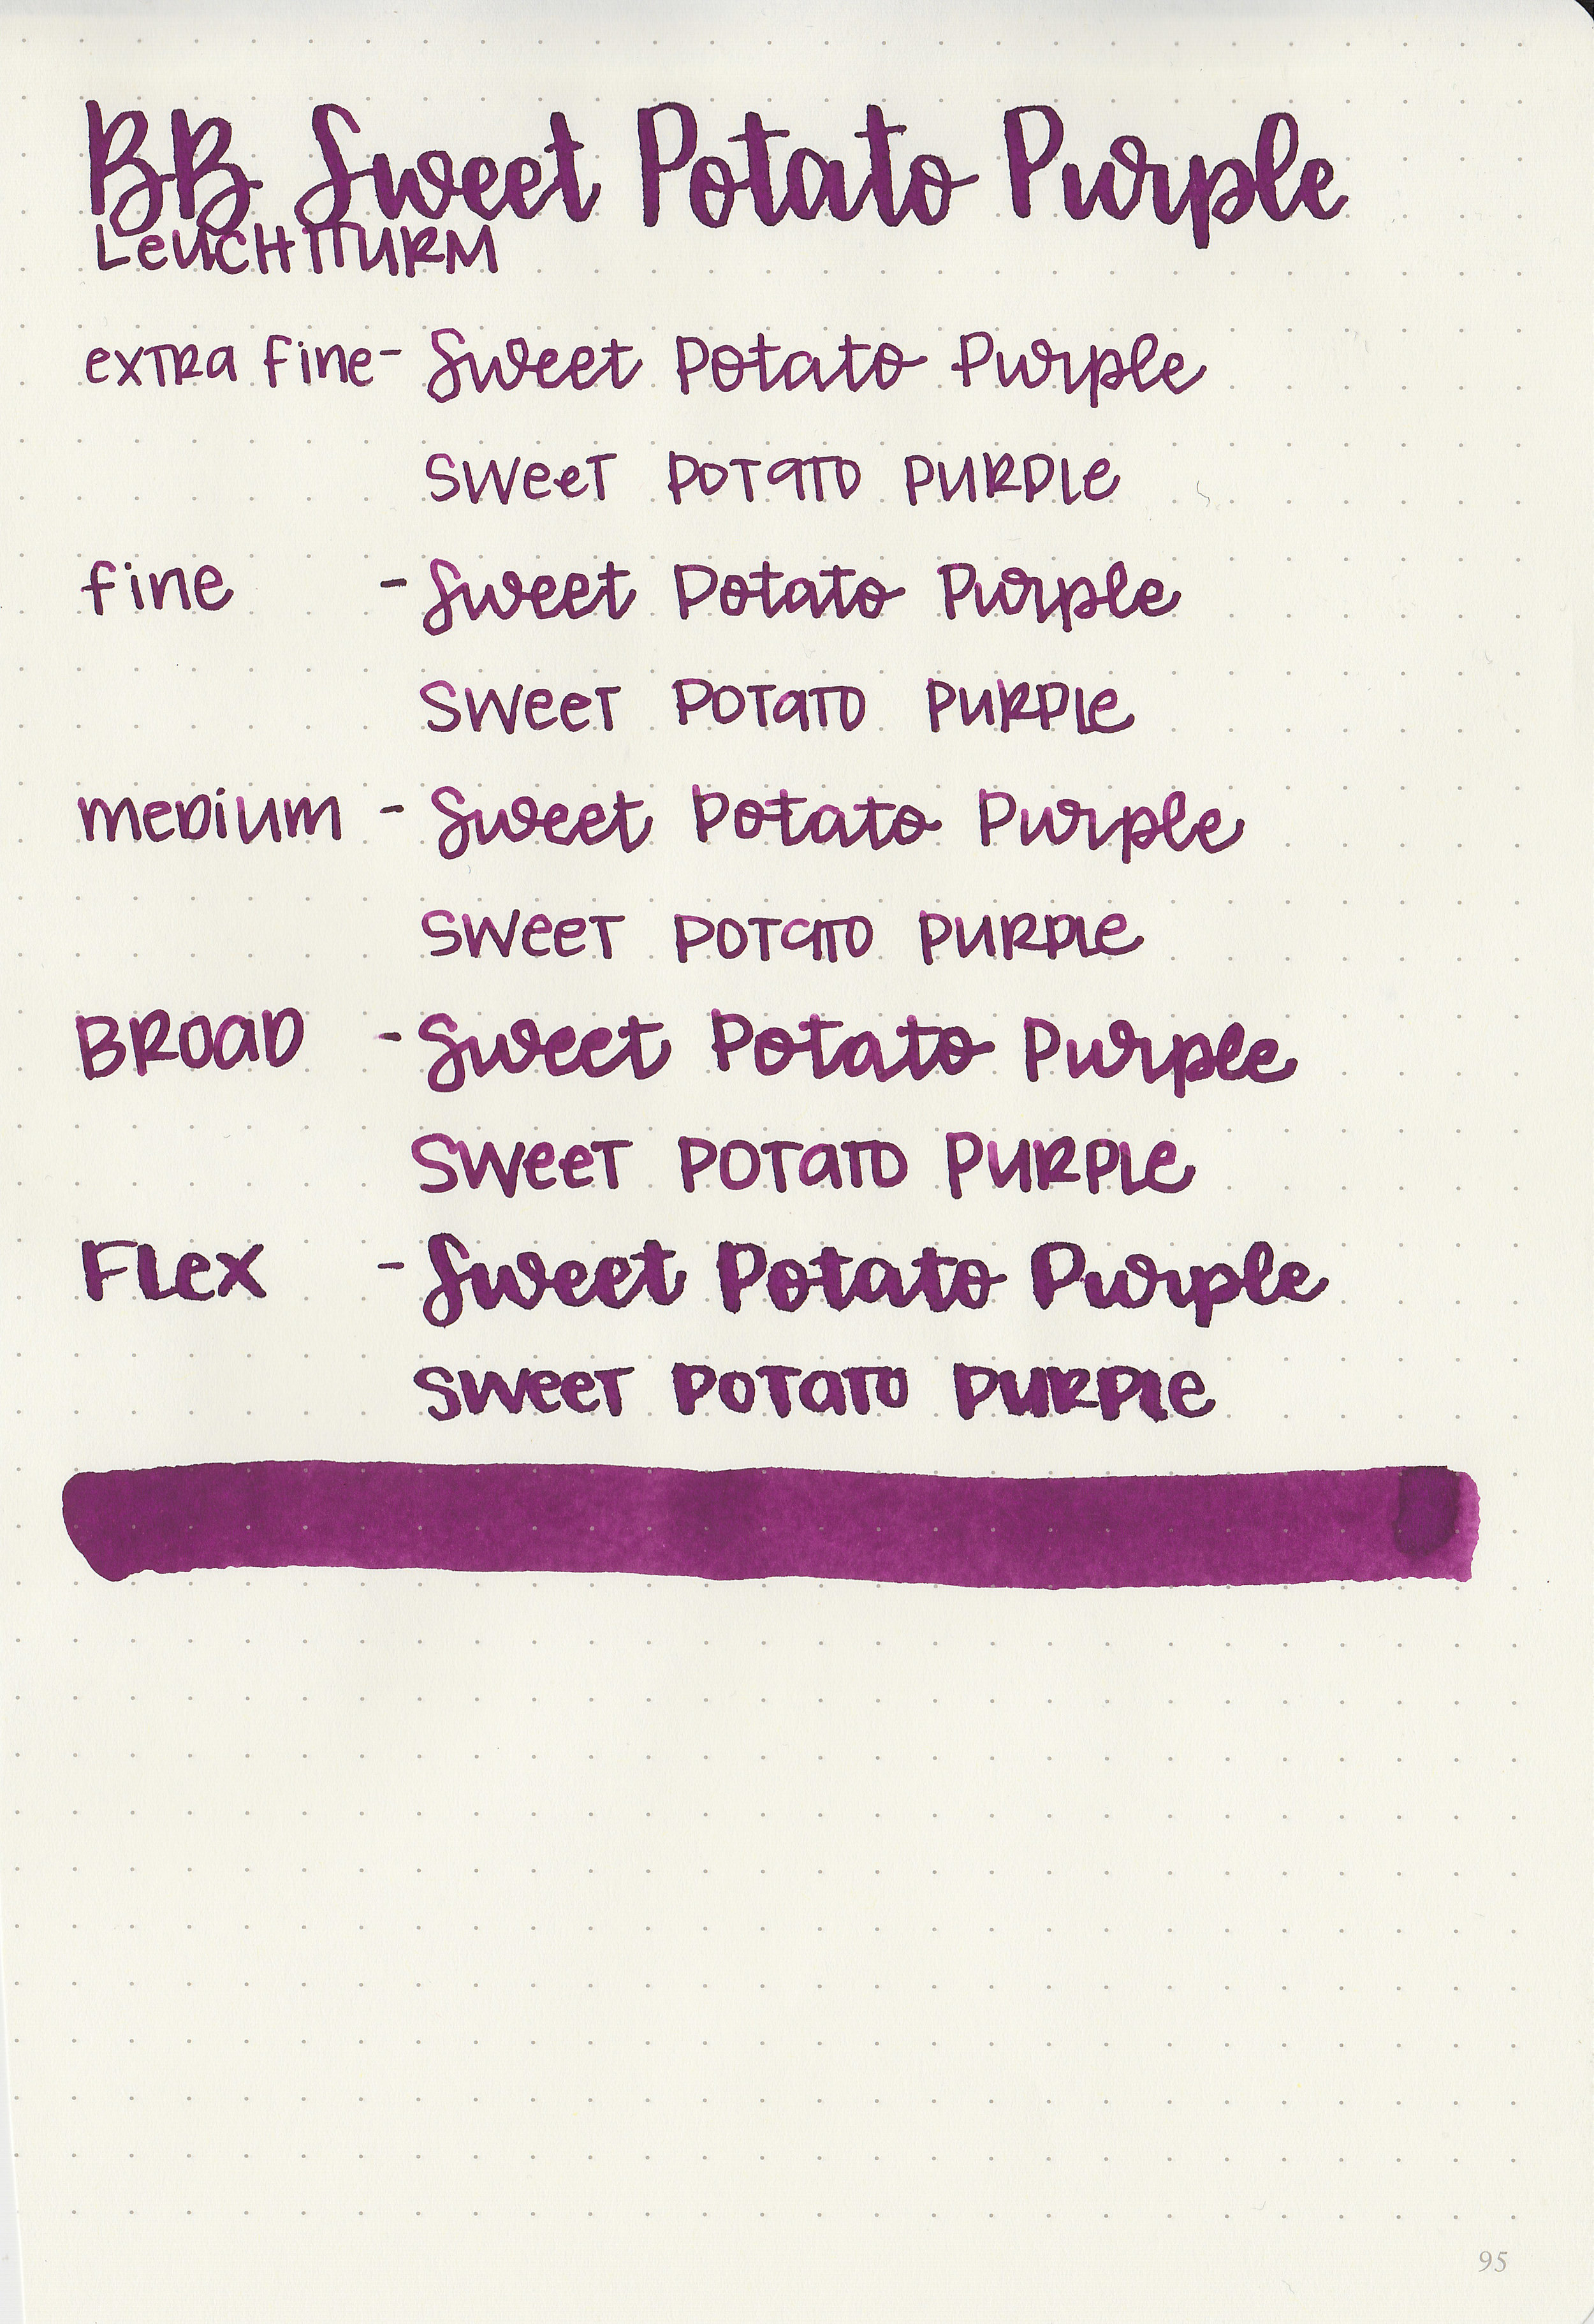 BB Sweet Potato Purple
LeUCHTTURM
exTRa fine- Sweet Potato Purple
SWeeT POTaTO PURPle
fine - Sweet Potato Purple
SWeeT POTaTO PURPle
meDiUm - Sweet Potato Purple
SWeeT POTaTO PURPle
BROaD - Sweet Potato Purple
SWeeT POTaTO PURPLe
FLex - Sweet Potato Purple
SWeeT POTaTO PURPle
95